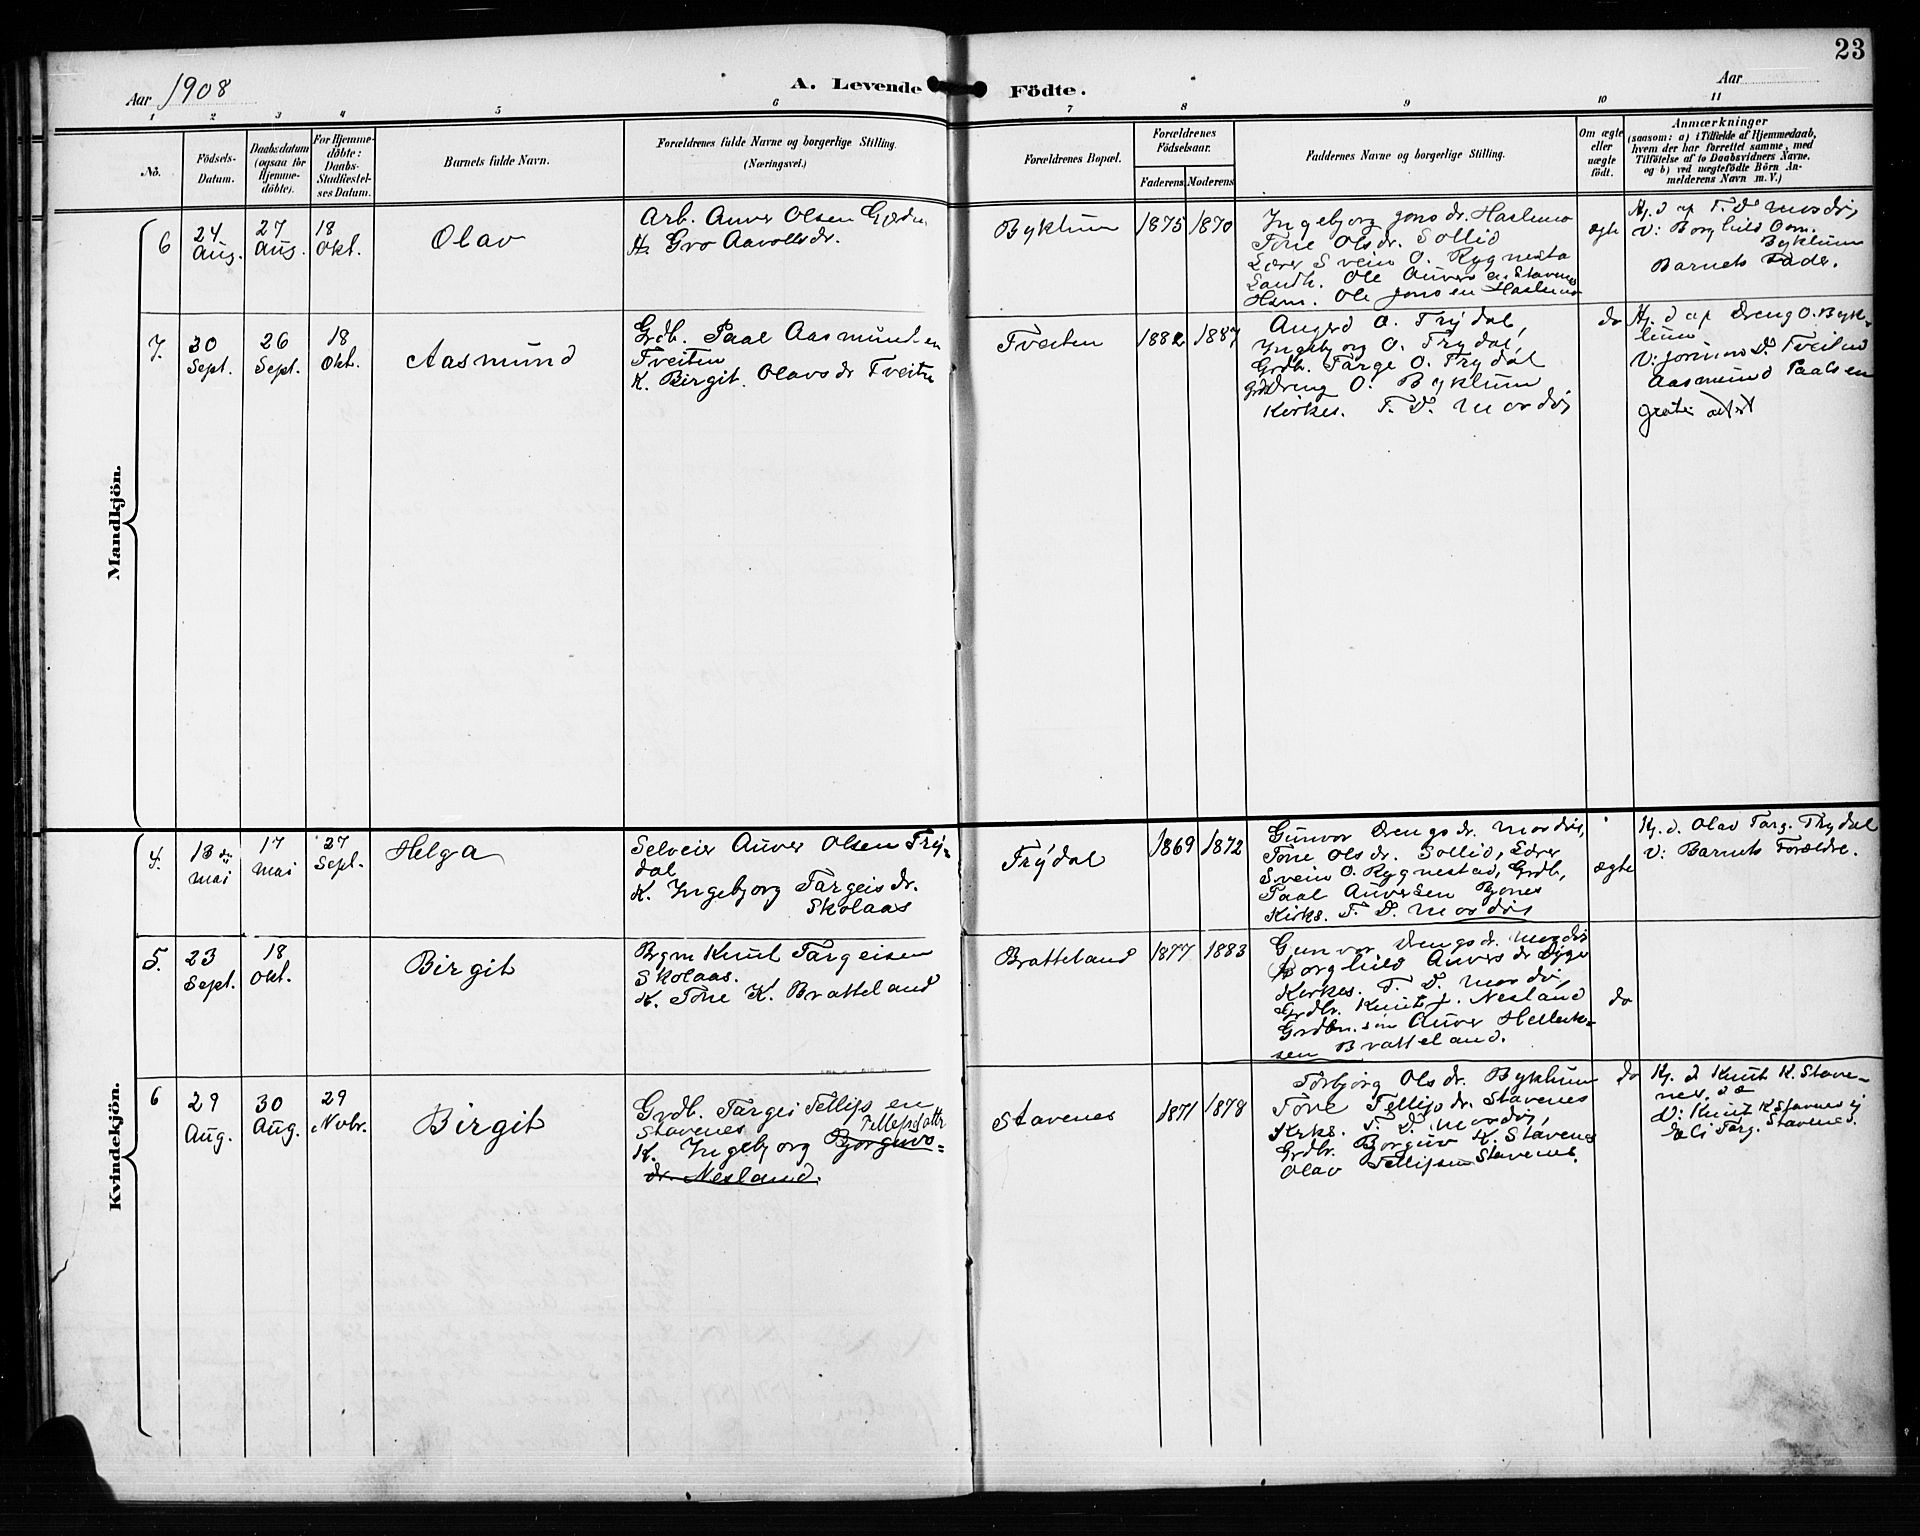 23
Aar 1908
A. Levende Födte.
Aar
1 2 3 4 5 6 7 8 9 10 11
No.
Födsels-
Datum.
Daabsdatum
(ogsaa for
Hjemme-
döbte).
For Hjemme-
döbte:
Daabs-
Stadfæstel-
ses Datum.
Barnets fulde Navn.
Forældrenes fulde Navne og borgerlige Stilling.
(Næringsvei.)
Forældrenes Bopæl.
Forældrenes
Födselsaar.
Faderens
Moderens
Faddernes Navne og borgerlige Stilling.
Om ægte
eller
uægte
födt.
Anmærkninger
(saasom: a) i Tilfælde af Hjemmedaab,
hvem der har forrettet samme, med
Tilföielse af to Daabsvidners Navne.
og b) ved uægtefödte Börn An-
melderens Navn m. V.)
Mandkjön.
6
24
Aug.
27
Aug.
18
Okt.
Olav
Arb. Auver Olsen
H. Gro Aavollsdr.
Byklum
1875
1870
Ingebjorg Jonsdr. Haslemo
Tone Olsdr. Sollid
Lærer Svein O. Rygnestad
Landh. Ole Auvers
Hsm. Ole Jonsen Haslemo
ægte
Hj. d af T. D. Mosdøl
V: Borghild Om.
Byklum
Barnets Fader.
7.
20
Sept.
26
Sept.
18
Okt.
Aasmund
Grdb. Paal Aasmundsen
Tveiten
K. Birgit Olavsdr Tveiten
Tveiten
1882
1887
Angerd O. Trydal,
Ingebjorg O. Trydal,
Grdb. Targe O. Trydal
Dreng O. Byklum
Kirkes. T. D. Mosdøl
do
Hj. d af Dreng O. Byk-
lum
V: Jorunn D. Tveiten
Aasmund Paalsen
Gratis attest
Kvindekjön.
4.
13 de
Mai
17
Mai
27
Sept.
Helga
Selveier Auver Olsen Try-
dal
K. Ingebjorg Targeisdr.
Skolaas
Trydal
1869
1872
Gunvor Drengsdr. Mosdøl,
Tone Olsdr. Sollid, Lærer
Svein O. Rygnestad, Grdb.
Paal Auversen Bjones
Kirks. T. D. Mosdøl
ægte
Hj. d. Olav Targ. Trydal
V: Barnets Forældre.
5.
23
Sept.
18
Okt.
Birgit
Brgm Knut Targeisen
Skolaas.
K. Tone K. Bratteland
Bratteland
1877
1883
Gunvor Drengsdr. Mosdøl
Borghild Auversdr
Kirkes. T. D. Mosdøl,
Grdbr. Knut J. Nesland
Grdbr. søn Auver Helleik-
sen Bratteland.
do
6
29
Aug.
30
Aug.
29
Nvbr.
Birgit
Grdb. Targei Tellefsen
Stavenes Tellefsdattr
K. Ingebjorg Bjorguvs-
dr. Nesland.
Stavenes
1871
1878
Torbjorg Olsdr. Byklum
Tone Tellifsdr. Stavenes
Kirks. T. D. Mosdøl,
Grdbr. Borguv K. Stavenes
Olav Tellifsen Stavenes.
do
Hj. d Knut K. Stave-
nes.
V: Knut K Stavenes og
Eli Targ. Stavenes.